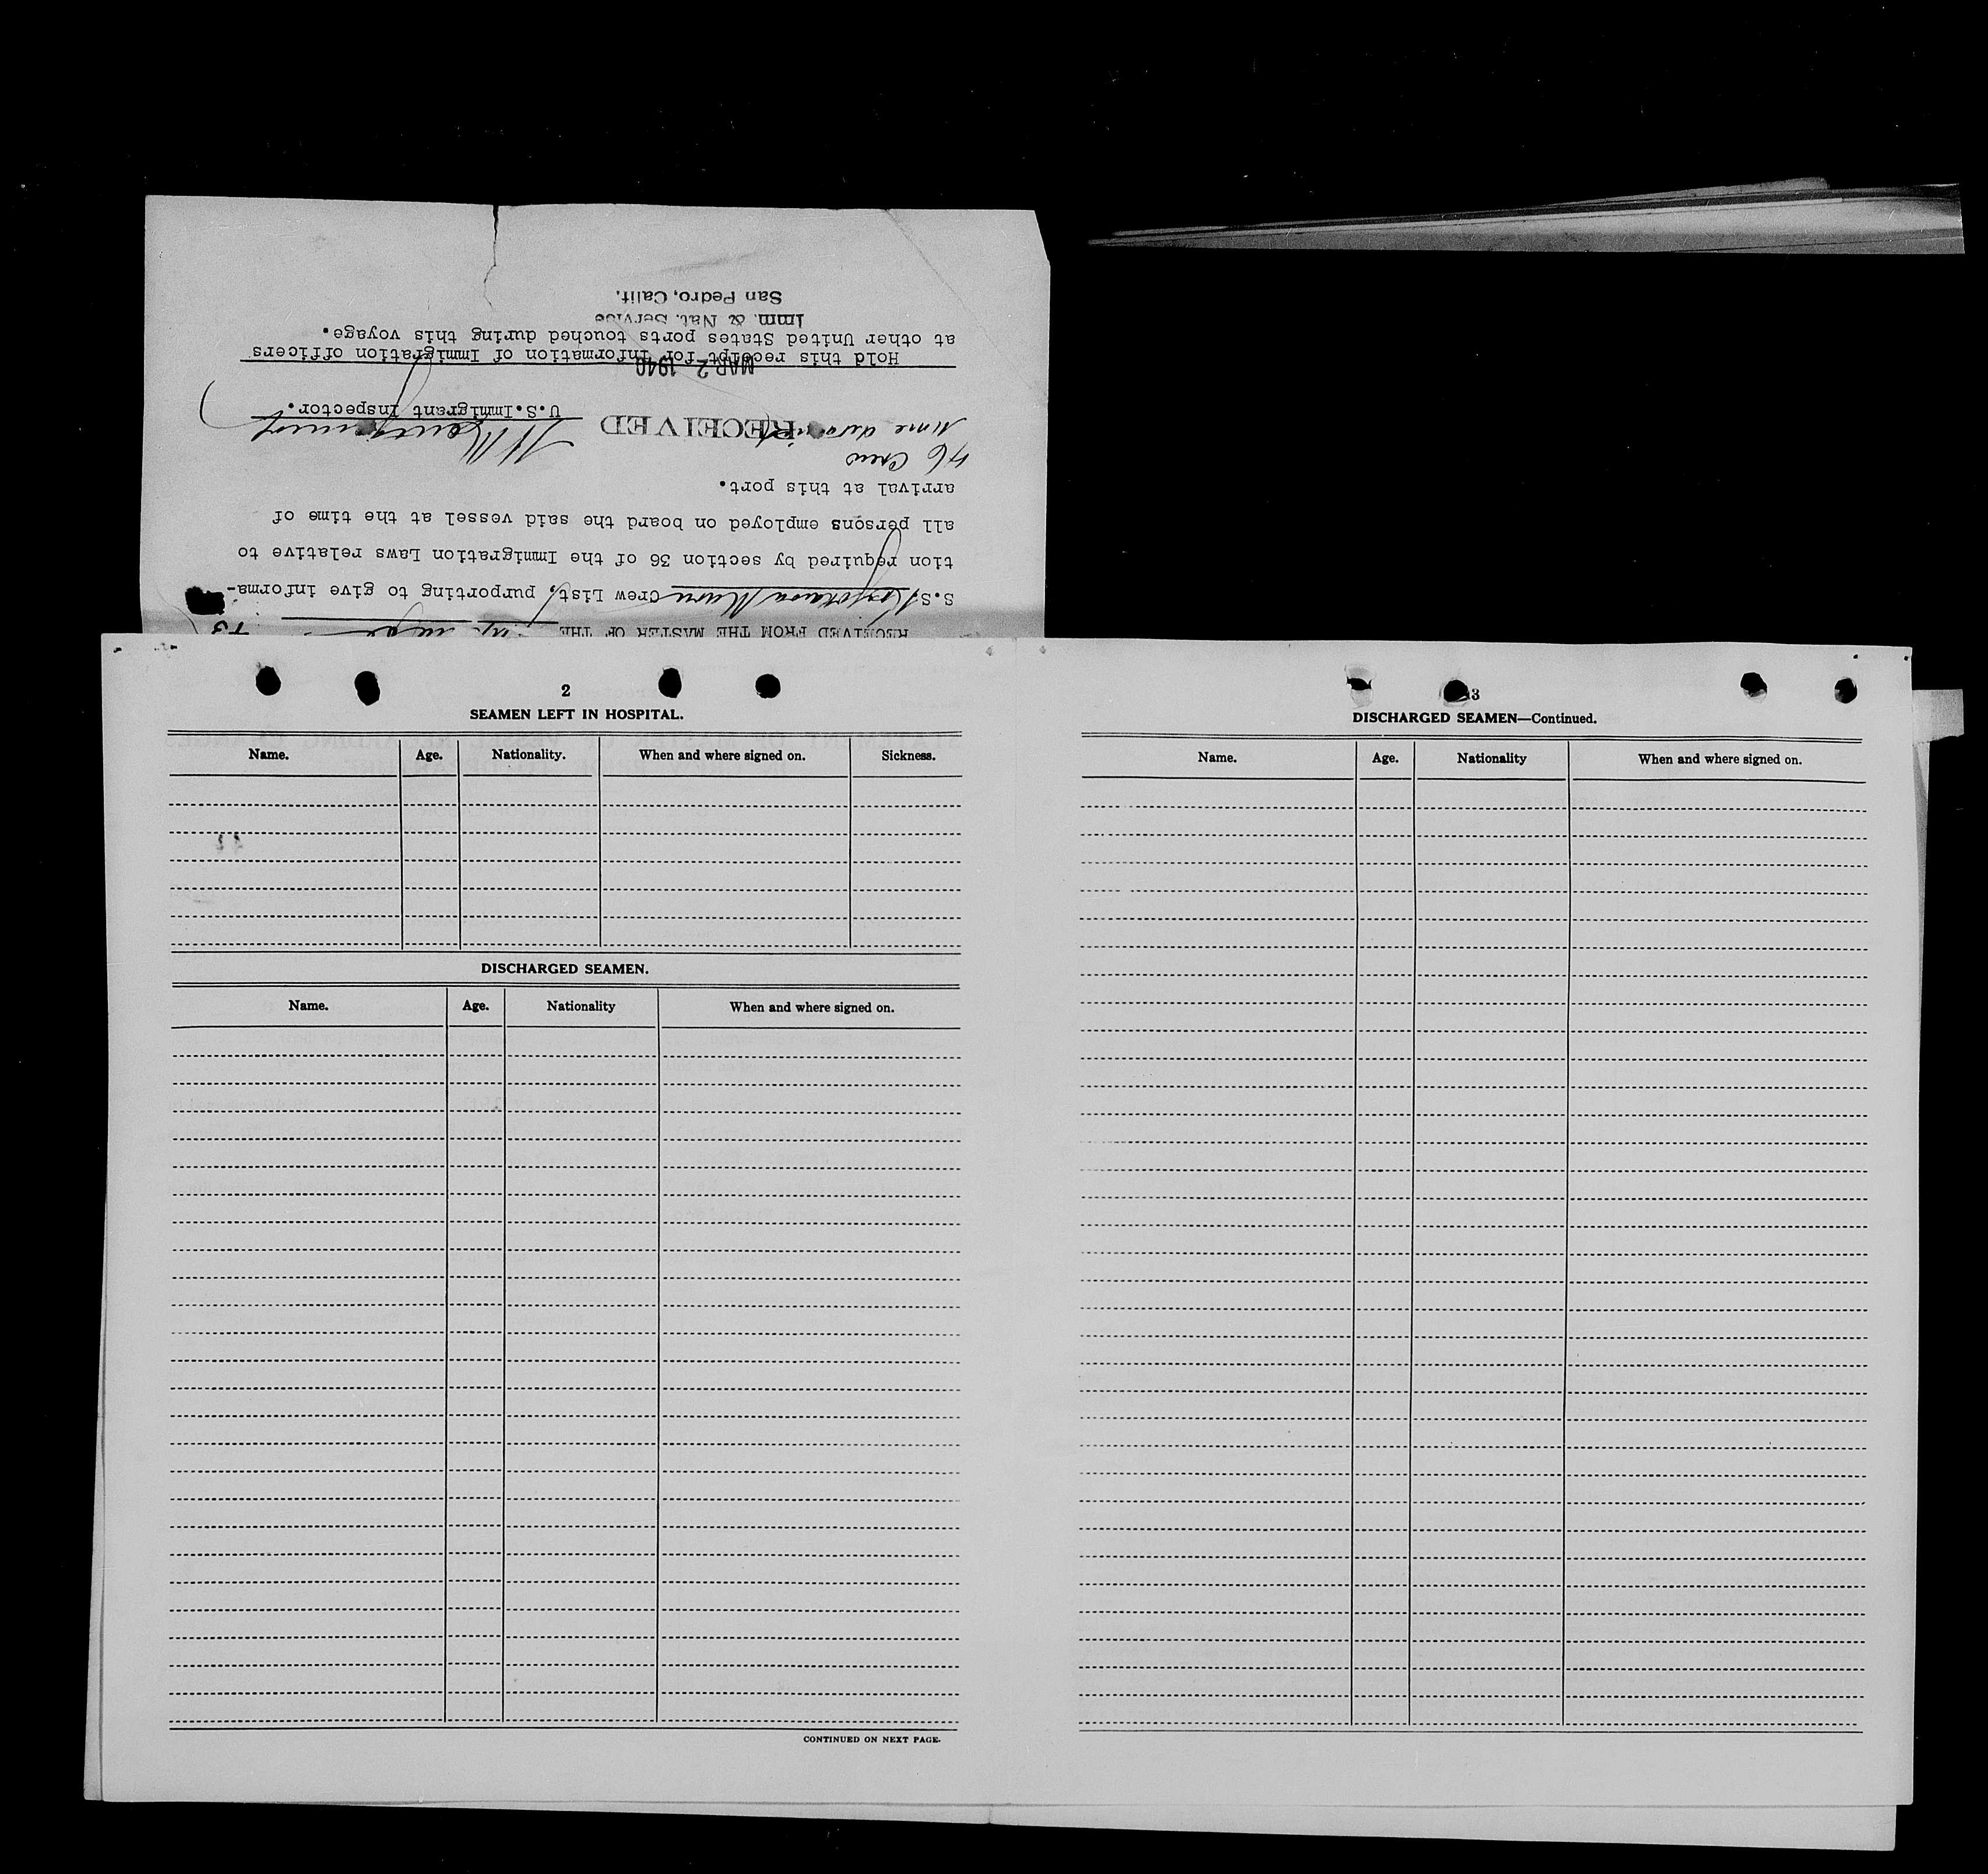 RECEIVED FROM THE MASTER OF THE
S.S. Maru Crew List, purporting to give informa-
tion required by section 36 of the Immigration Laws relative to
all persons employed on board the said vessel at the time of
arrival at this port.
46 Crew
None
RECEIVED
U.S.Immigrant Inspector.
MAR 2 1940
Hold this receipt for information of Immigration officers
at other United States ports touched during this voyage.
Imm. & Nat. Service
San Pedro, Calif.
2
SEAMEN LEFT IN HOSPITAL.
Name. Age. Nationality. When and where signed on. Sickness.
DISCHARGED SEAMEN.
Name. Age. Nationality When and where signed on.
CONTINUED ON NEXT PAGE.
3
DISCHARGED SEAMEN—Continued.
Name. Age. Nationality When and where signed on.